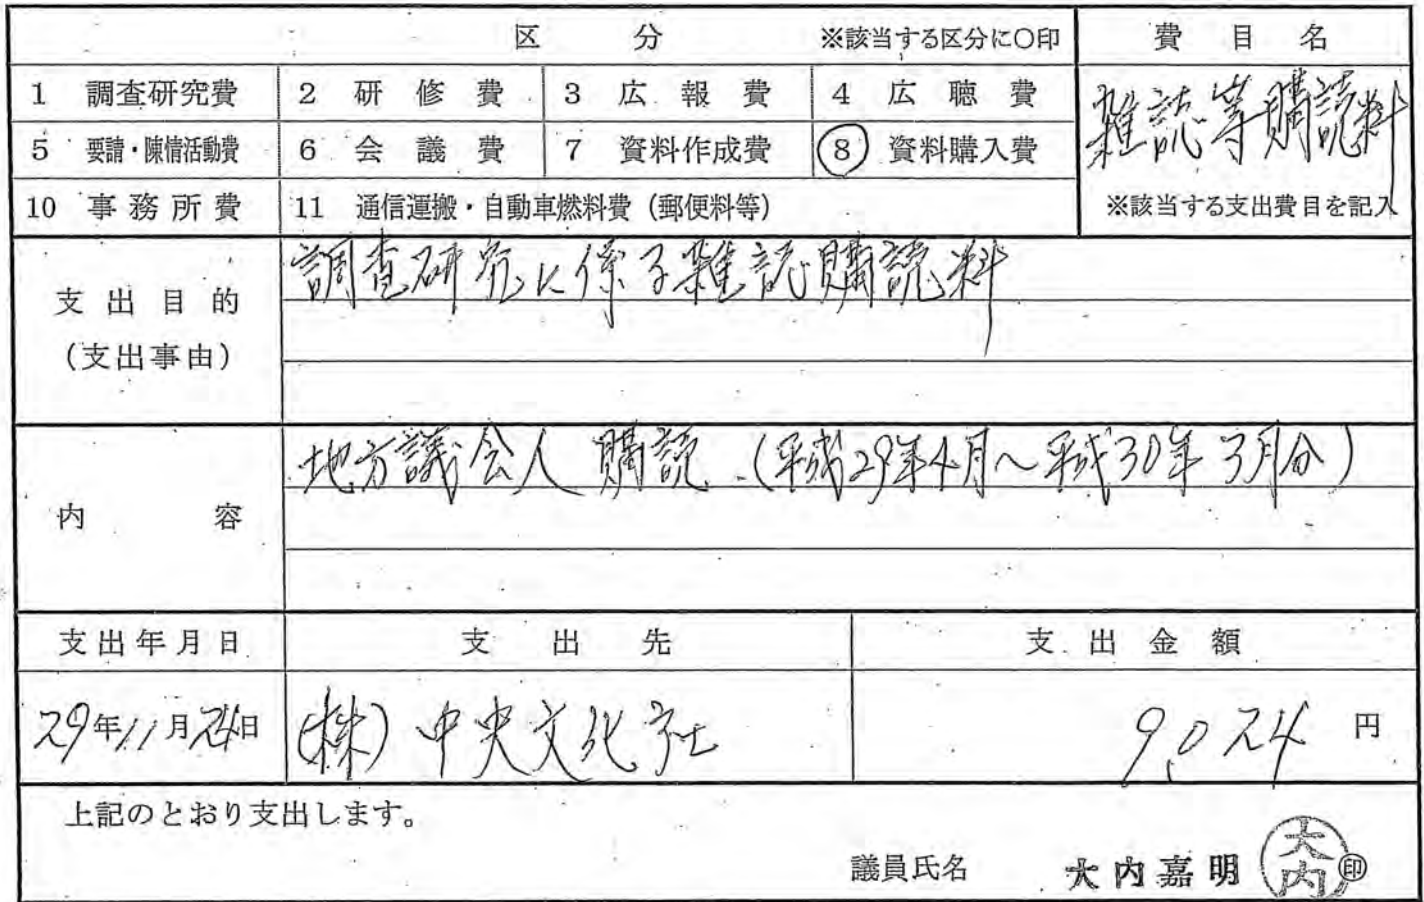 区 分 ※該当する区分に○印
費 目 名
1 調査研究費 2 研修費 3 広報費 4 広聴費
雑誌等購読料
5 要請・陳情活動費 6 会議費 7 資料作成費 8 資料購入費
10 事務所費 11 通信運搬・自動車燃料費(郵便料等)
※該当する支出費目を記入
支出目的
(支出事由)
調査研究に係る雑誌購読料
内 容
地方議会人 購読 (平成29年4月~平成30年3月分)
支出年月日 支 出 先 支 出 金 額
29年11月24日 (株)中央文化社 9,024 円
上記のとおり支出します。
議員氏名 大内嘉明 大内 ㊞